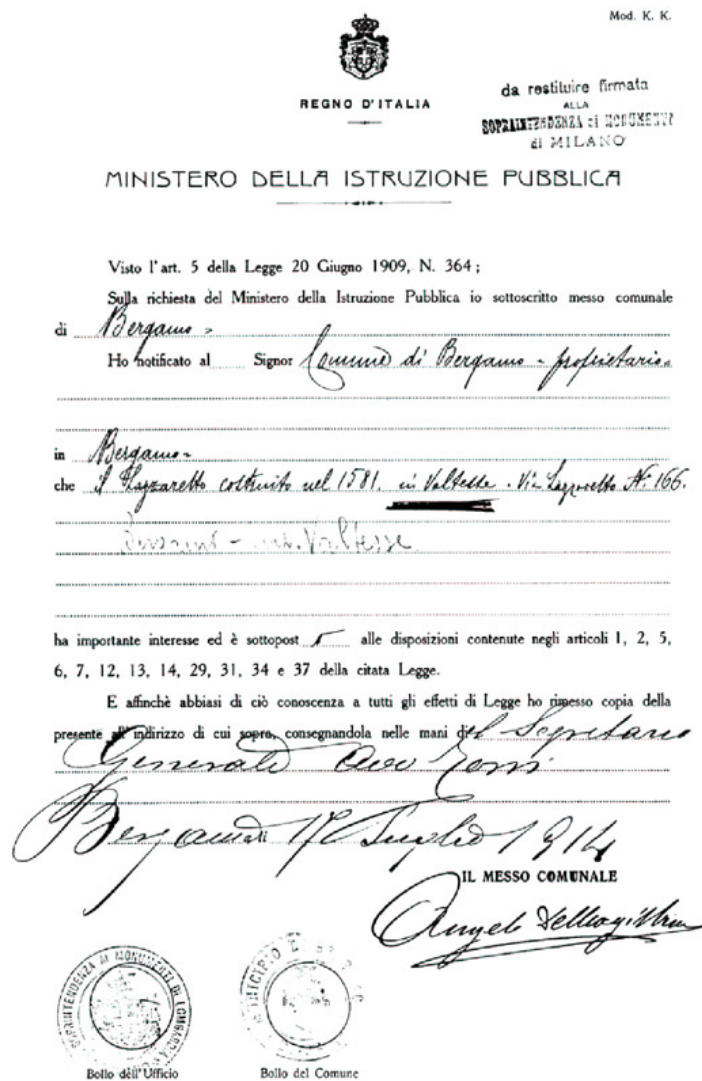 Mod. K. K.
REGNO D'ITALIA
da restituire firmata
ALLA
SOPRAINTENDENZA ai MONUMENTI
di MILANO
MINISTERO DELLA ISTRUZIONE PUBBLICA
Visto l'art. 5 della Legge 20 Giugno 1909, N. 364;
Sulla richiesta del Ministero della Istruzione Pubblica io sottoscritto messo comunale
di Bergamo =
Ho notificato al Signor Comune di Bergamo - proprietario =
in Bergamo =
che il Lazzaretto costruito nel 1581. in Valtesse. Via Lazzaretto N. 166.
Valtesse
ha importante interesse ed è sottopost o alle disposizioni contenute negli articoli 1, 2, 5,
6, 7, 12, 13, 14, 29, 31, 34 e 37 della citata Legge.
E affinchè abbiasi di ciò conoscenza a tutti gli effetti di Legge ho rimesso copia della
presente all'indirizzo di cui sopra, consegnandola nelle mani del Segretario
Generale
Bergamo li 17 Luglio 1914
IL MESSO COMUNALE
Angelo
SOPRINTENDENZA AI MONUMENTI DI LOMBARDIA
MUNICIPIO
Bollo dell'Ufficio
Bollo del Comune